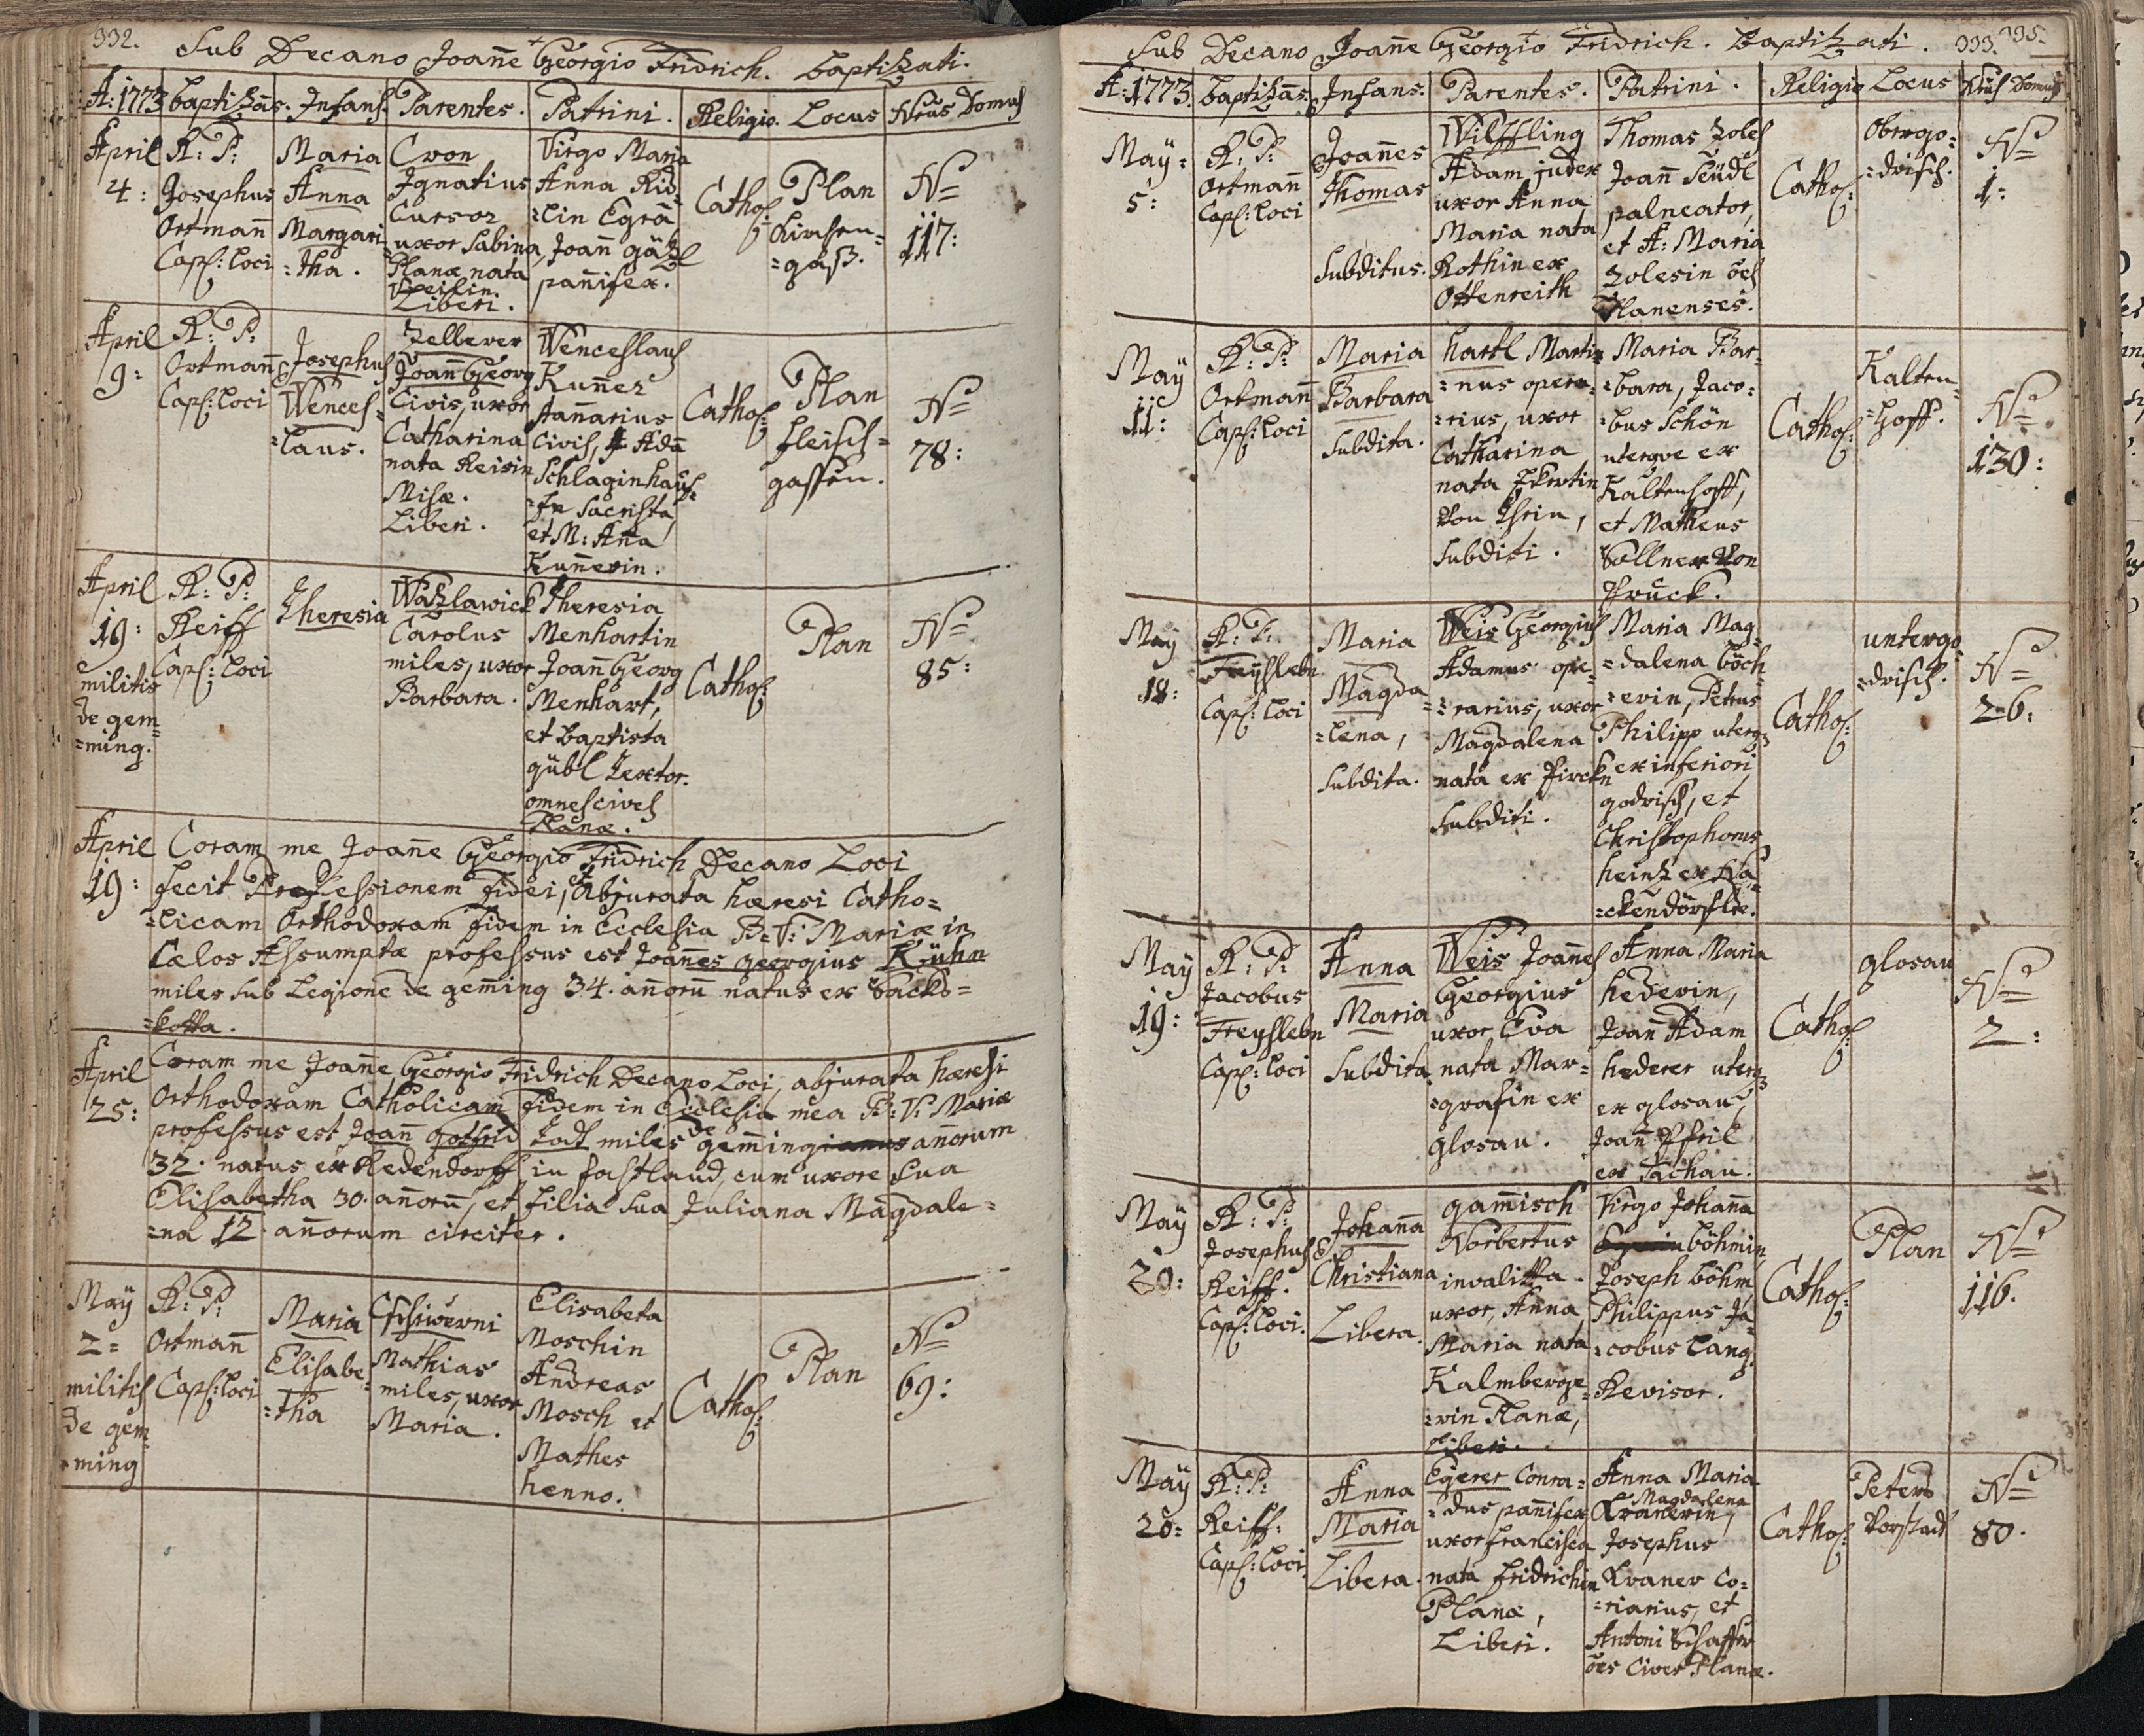 332.
Sub Decano Joanne Georgio Fridrich. baptizati.
A: 1773 baptizans. Infans. Parentes. Patrini. Religio. Locus Nrus Domus
April
4:
R: P:
Josephus
Ortmañ
Capl: Loci
Maria
Anna
Margari
=tha.
Cron
Ignatius
Cursor
uxor Sabina
Planæ nata
Liberi.
Virgo Maria
Anna Rid=
=lin Egrâ
Joañ gätzl
pañifex.
Cathol:
Plan
Kirchen=
=gaß.
No
117:
April
9:
R: P:
Ortmañ
Capl: Loci
Josephus
Wences=
=laus.
Zellerer
Joañ Georg
Civis, uxor
Catharina
nata Reisin
Misæ.
Liberi.
Wenceslaus
Kuñer
Civis, Adã
Schlaginhauf=
=fn Sacrista,
et M: Aña
Kuñerin.
Cathol:
Plan
fleisch=
gassen.
No
78:
April
19:
militis
de gem=
=ming.
R: P:
Reiff
Capl: Loci
Theresia
Watzlawick
Carolus
miles, uxor
Barbara.
Theresia
Menhartin
Joañ Georg
Menhart,
et baptista
gübl Textor.
omnes cives
Planæ.
Cathol:
Plan
No
85:
April
19:
Coram me Joañe Georgio Fridrich Decano Loci
fecit Professionem fidei, et abjurata hæresi Catho=
=licam Orthodoxam fidem in Ecclesia B: V: Mariæ in
Cælos Assumptæ professus est Joañes georgius Kühn
miles sub Legione de gem̃ing 34. añorũ natus ex
April
25:
Coram me Joañe Georgio Fridrich Decano Loci, abjurata hæresi
Orthodoxam Catholicam fidem in Ecclesia mea B: V: Mariæ
professus est Joañ gotfrid Jodt miles de gem̃ing añorum
32. natus ex Redendorff in, cum uxore sua
Elisabetha 30. añorũ, et filia sua Juliana Magdale=
=na 12 añorum circiter.
May
2=
militis
de gem=
=ming
R: P:
Ortmañ
Capl: Loci
Maria
Elisabe=
=tha
Mathias
miles, uxor
Maria.
Elisabeta
Moschin
Andreas
Mosch et
Mathes
henno.
Cathol:
Plan
No
69:
Sub Decano Joañe Georgio Fridrich. baptizati. 333. 335.
A: 1773. baptizans. Infans. Parentes. Patrini. Religio Locus Nrus Domus
May:
5:
R: P:
Ortmañ
Capl: Loci
Joañes
Thomas
Subditus.
Wilffling
Adam judex
uxor Anna
Maria nata
Rothin ex
Ottenreith
Thomas Zoles
Joañ Seüdl
palneator,
et A: Maria
Zolesin oẽs
Planenses.
Cathol:
Obergo=
=drisch.
No
1:
May
11:
R: P:
Ortmañ
Capl: Loci
Maria
Barbara
Subdita.
hartl Marti=
=nus opera=
=rius, uxor
Catharina
nata
Subditi.
Maria Bar=
=bara, Jaco=
=bus Schön
uterque ex
Kaltenhoff,
et Matheus
Söllner von
Pruck.
Cathol:
Kalten=
=hoff.
No
130:
May
18:
R: P:
Freysleben
Capl: Loci
Maria
Magda=
=lena,
Subdita.
Weis Georgius
Adamus ope=
=rarius, uxor
Magdalena
nata ex Pirckn
Subditi.
Maria Mag=
=dalena böch=
=erin, Petrus
Philipp uterq3
ex inferiori
godrisch, et
Christophorus
heintz ex Ha=
=ckendörflse.
Cathol:
untergo
=drisch.
No
26:
May
19:
R: P:
Jacobus
Freyslebn
Capl: Loci
Anna
Maria
Subdita
Weis Joañes
Georgius
uxor Eva
nata Mar=
=grafin ex
glosau.
Anna Maria
hederin,
Joañ Adam
hederer uterq3
ex glosau,
Joañ Pfril
ex Tachau.
Cathol:
glosau
No
2:
May
20:
R: P:
Josephus
Reiff.
Capl: Loci.
Johaña
Christiana
Libera.
gam̃isch
Norbertus
invalitta.
uxor, Anna
Maria nata
Kalmberge=
=rin Planæ,
Liberi.
Virgo Johaña
böhmin,
Joseph böhm
Philippus Ja=
=cobus Lang
Revisor.
Cathol:
Plan
No
116.
May
20:
R: P:
Reiff:
Capl: Loci
Anna
Maria
Libera.
Egerer Conra=
=dus pañifex
uxor francisca
nata fridrichin
Planæ,
Liberi.
Anna Maria
Magdalena
Kranerin,
Josephus
Kraner Co=
=riarius, et
Antoni Schaffer
oẽs Cives Planæ.
Cathol:
Peters
Vorstadt
No
80.